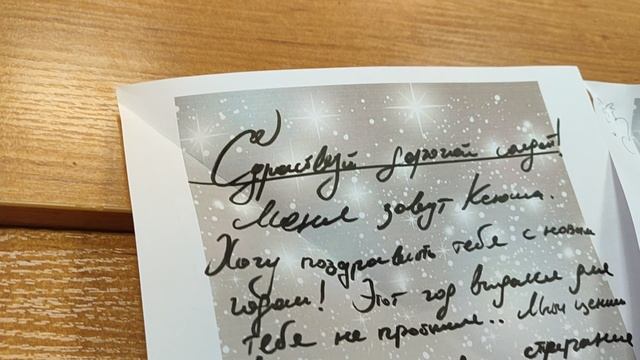 Здраствуй дорогой солдат!
Меня зовут Ксюша.
Хочу поздравить тебя с новым
годом! Этот год выдался для
тебя не простым.. Мы ценим
старание